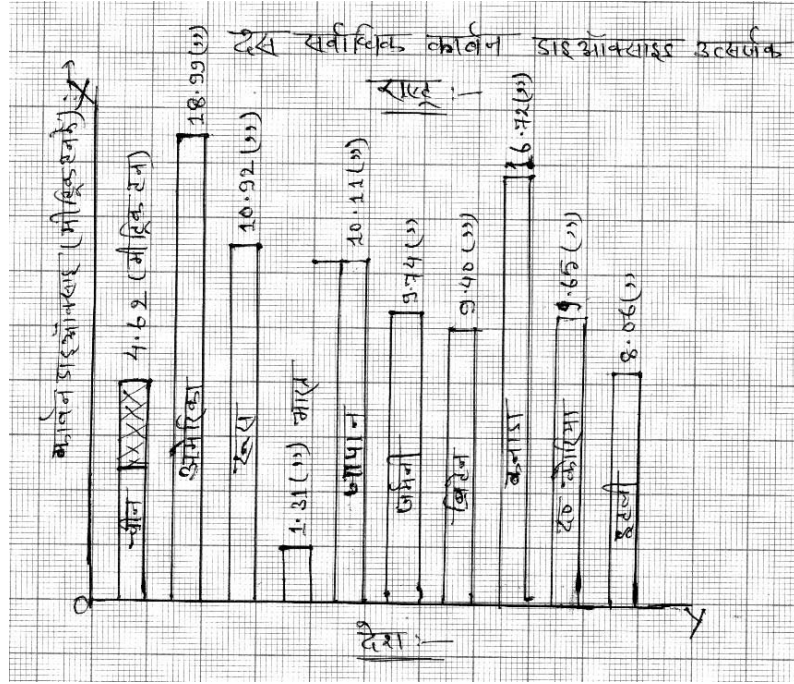 दस सर्वाधिक कार्बन डाइऑक्साइड उत्सर्जक
राष्ट्र :—
X
कार्बन डाइऑक्साइड (मीट्रिक टन में) :- →
चीन
4.62 (मीट्रिक टन)
अमेरिका
18.99 (,,)
रूस
10.92 (,,)
1.31 (,,) भारत
जापान
10.11 (,,)
जर्मनी
9.74 (,,)
ब्रिटेन
9.40 (,,)
कनाडा
16.72 (,,)
द० कोरिया
9.65 (,,)
इटली
8.06 (,,)
O
Y
देश :—